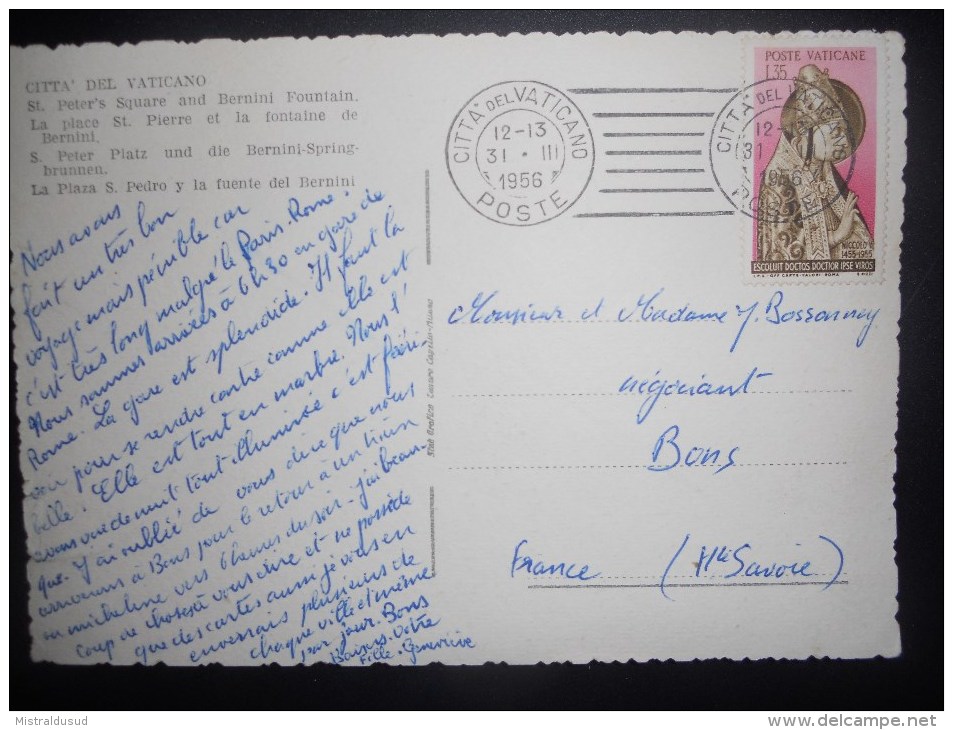 CITTA' DEL VATICANO
St. Peter's Square and Bernini Fountain.
La place St. Pierre et la fontaine de
Bernini.
S. Peter Platz und die Bernini-Spring-
brunnen.
La Plaza S. Pedro y la fuente del Bernini
Nous avons
fait un très bon
voyage mais pénible car
c'est très long malgré le Paris-Rome.
Nous sommes arrivées à 6h30 en gare de
Rome. La gare est splendide. Il faut la
voir pour se rendre compte comme elle est
belle. Elle est tout en marbre. Nous l'
avons vue de nuit tout illuminée c'est féeri-
que. J'ai oublié de vous dire que nous
arriverons à Bons pour le retour à un train
ou micheline vers 6 heures du soir. J'ai beau-
coup de choses à vous dire et ne possède
que des cartes aussi je vous en
enverrais plusieurs de
chaque ville et même
par jour. Bons
Baisers. Votre
fille. Geneviève
CITTA' DEL VATICANO
12-13
31 · III
1956
POSTE
CITTA' DEL VATICANO
12-
31 III
1956
POSTE
POSTE VATICANE
L.35
NICCOLO V
1455-1955
ESCOLUIT DOCTOS DOCTIOR IPSE VIROS
Monsieur et Madame J.
négociant
Bons
France (Hte Savoie)
Mistraldusud
www.delcampe.net